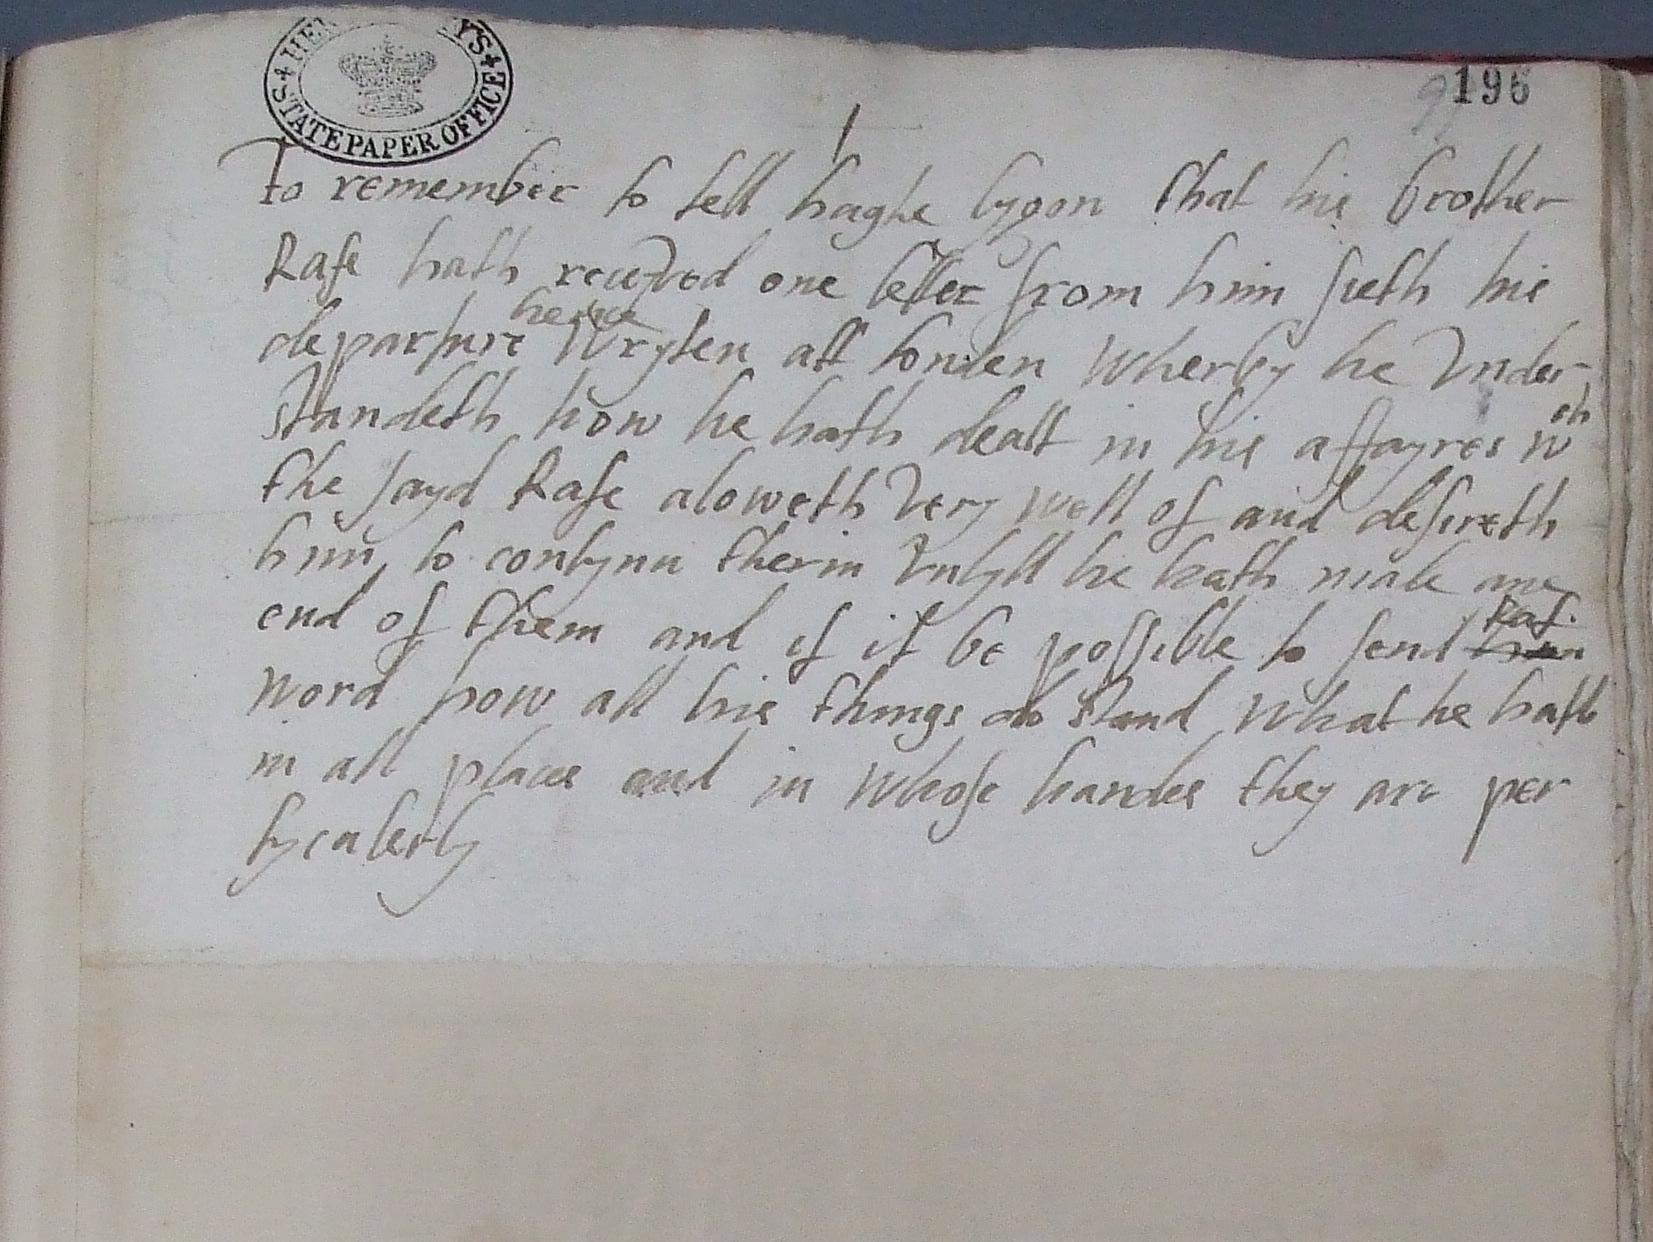 196
HER MAJESTY'S STATE PAPER OFFICE
To remember to tell hughe lygon that his brother
Rafe hath receyved one letter from him sieth his
departure hence wryten att London wherby he vnder
standeth how he hath dealt in his affayres wch
the sayd Rafe aloweth very well of and desireth
him to contynu therin vntyll he hath made ane
end of them and if it be possible to send him Raf.
word how all his things do stand what he hath
in all places and in whose handes they are per
tycalerly